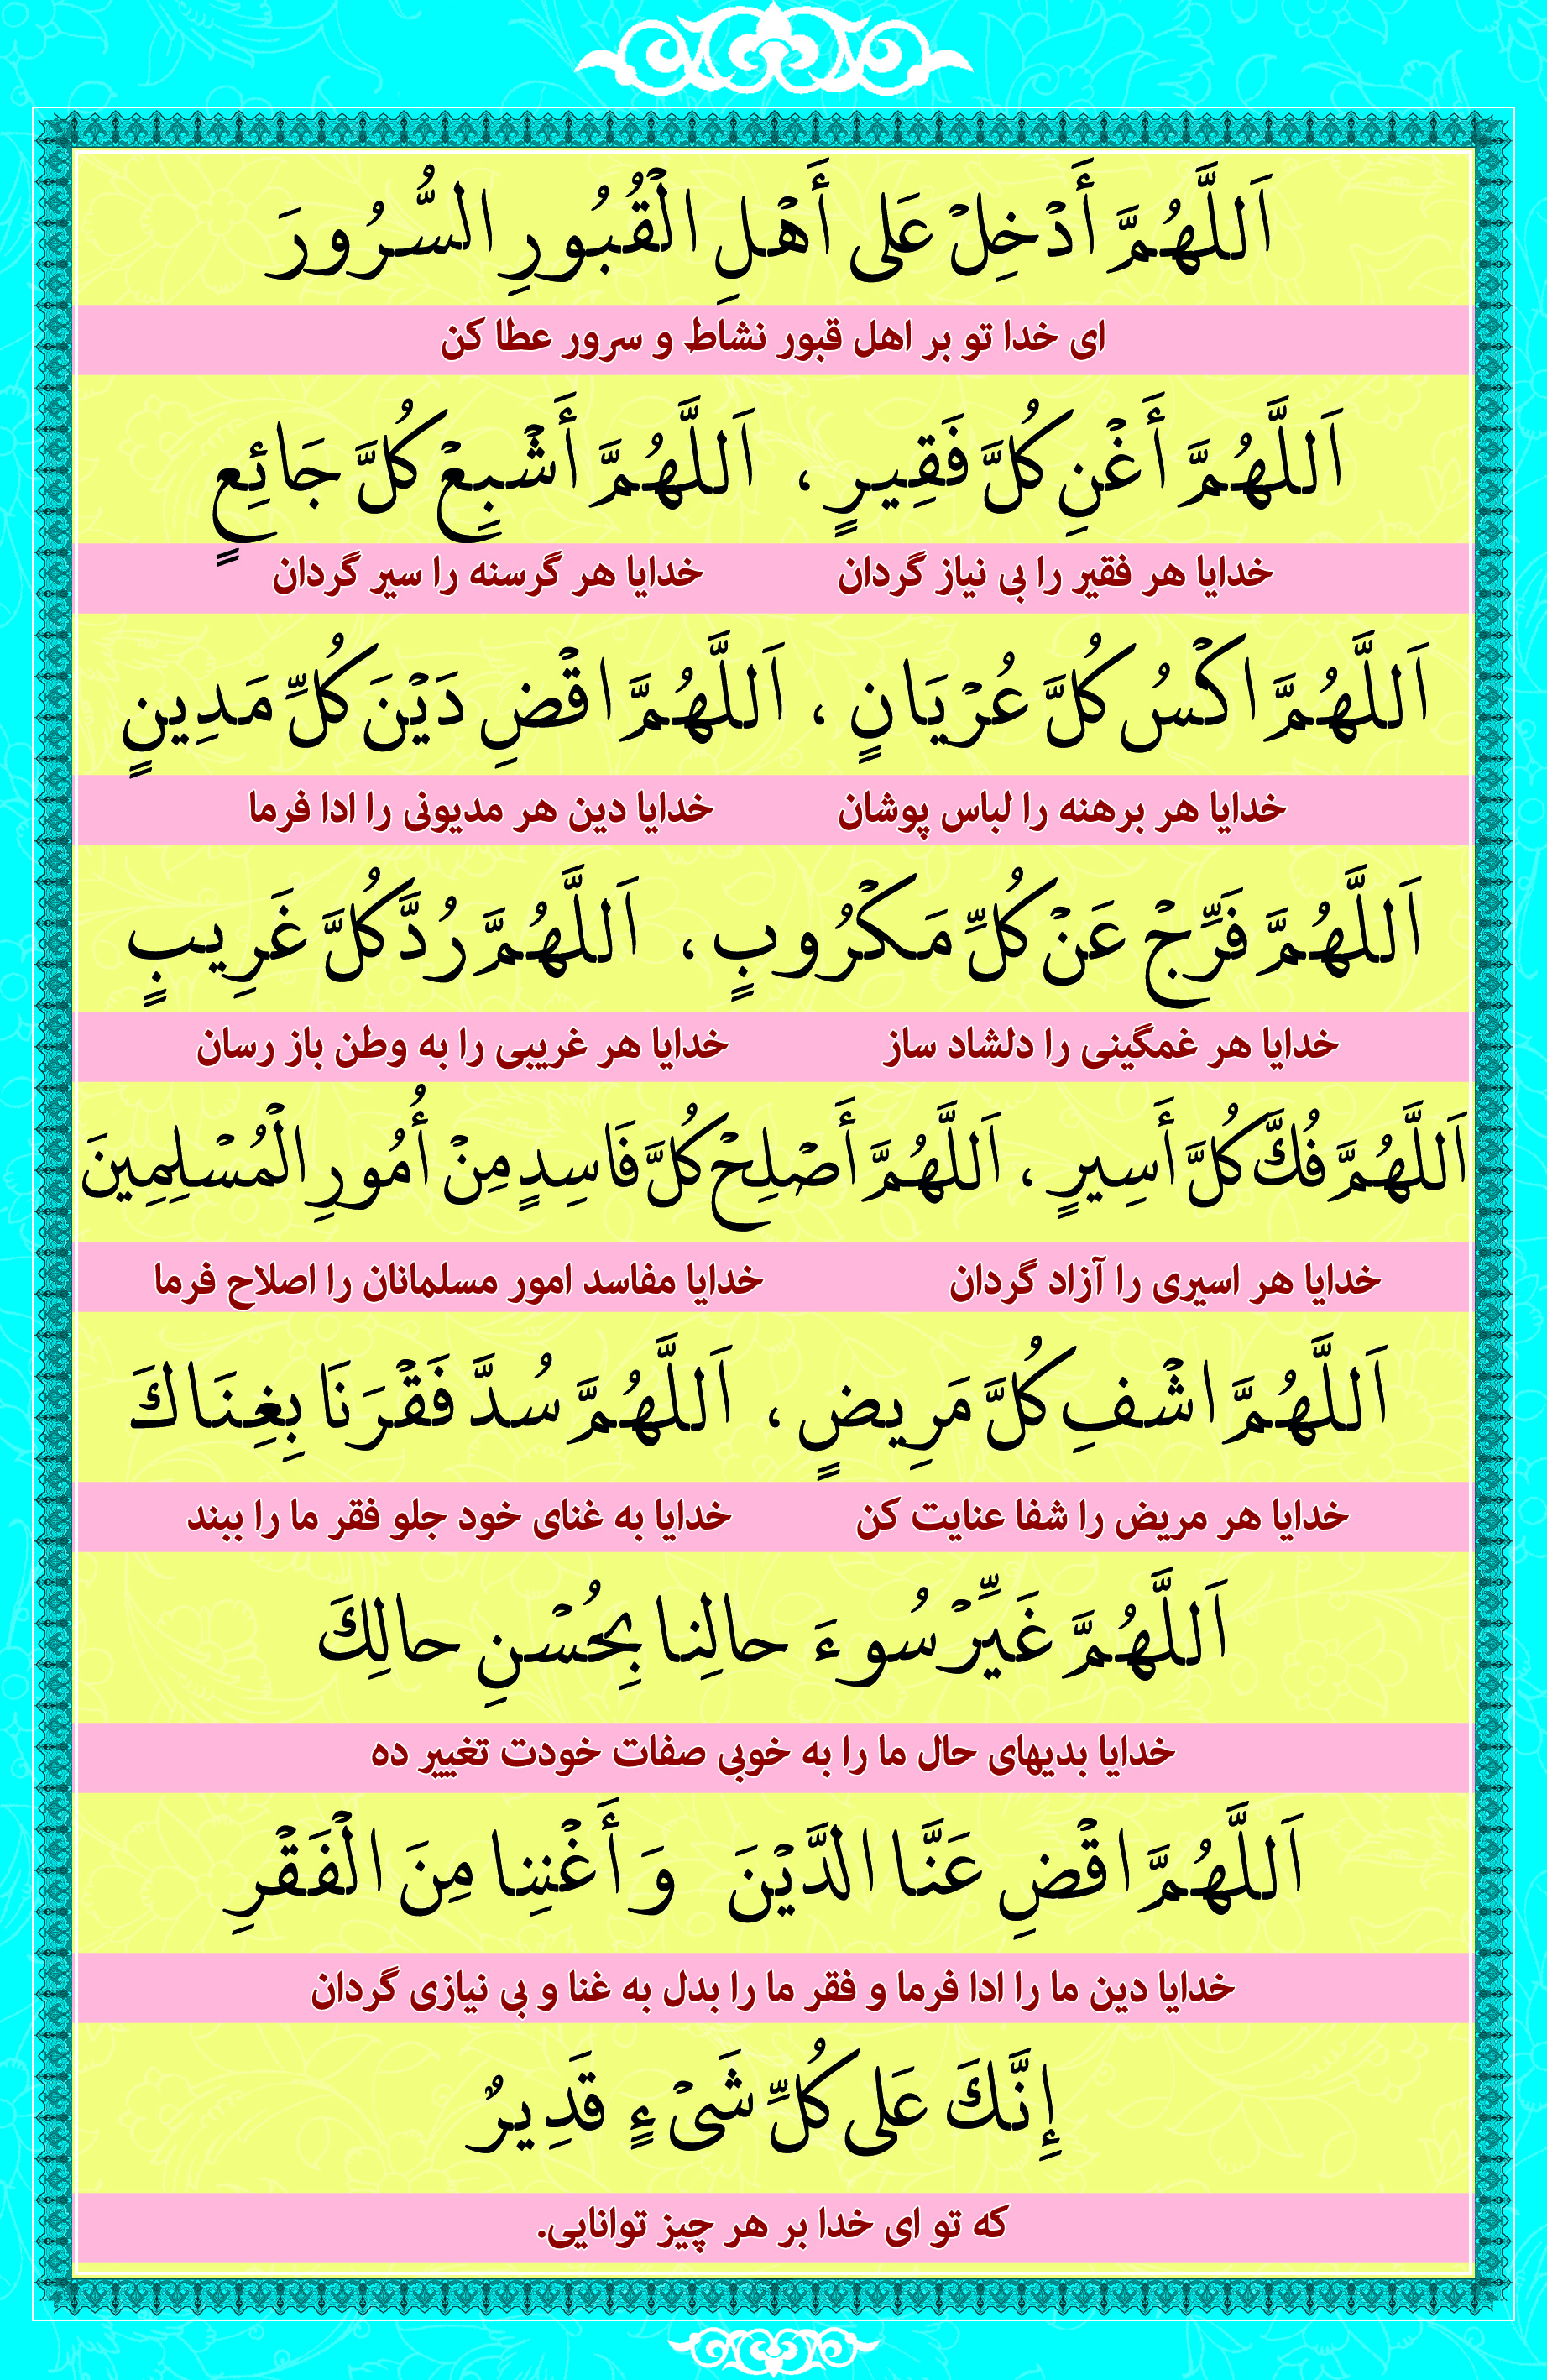 اَللَّهُمَّ أَدْخِلْ عَلى أَهْلِ الْقُبُورِ السُّرُورَ
ای خدا تو بر اهل قبور نشاط و سرور عطا کن
اَللَّهُمَّ أَغْنِ كُلَّ فَقِيرٍ ، اَللَّهُمَّ أَشْبِعْ كُلَّ جَائِعٍ
خدایا هر فقیر را بی نیاز گردان خدایا هر گرسنه را سیر گردان
اَللَّهُمَّ اكْسُ كُلَّ عُرْيَانٍ ، اَللَّهُمَّ اقْضِ دَيْنَ كُلِّ مَدِينٍ
خدایا هر برهنه را لباس پوشان خدایا دین هر مدیونی را ادا فرما
اَللَّهُمَّ فَرِّجْ عَنْ كُلِّ مَكْرُوبٍ ، اَللَّهُمَّ رُدَّ كُلَّ غَرِيبٍ
خدایا هر غمگینی را دلشاد ساز خدایا هر غریبی را به وطن باز رسان
اَللَّهُمَّ فُكَّ كُلَّ أَسِيرٍ ، اَللَّهُمَّ أَصْلِحْ كُلَّ فَاسِدٍ مِنْ أُمُورِ الْمُسْلِمِينَ
خدایا هر اسیری را آزاد گردان خدایا مفاسد امور مسلمانان را اصلاح فرما
اَللَّهُمَّ اشْفِ كُلَّ مَرِيضٍ ، اَللَّهُمَّ سُدَّ فَقْرَنَا بِغِنَاكَ
خدایا هر مریض را شفا عنایت کن خدایا به غنای خود جلو فقر ما را ببند
اَللَّهُمَّ غَيِّرْ سُوءَ حالِنا بِحُسْنِ حالِكَ
خدایا بدیهای حال ما را به خوبی صفات خودت تغییر ده
اَللَّهُمَّ اقْضِ عَنَّا الدَّيْنَ وَ أَغْنِنا مِنَ الْفَقْرِ
خدایا دین ما را ادا فرما و فقر ما را بدل به غنا و بی نیازی گردان
إِنَّكَ عَلى كُلِّ شَىْءٍ قَدِيرٌ
که تو ای خدا بر هر چیز توانایی.